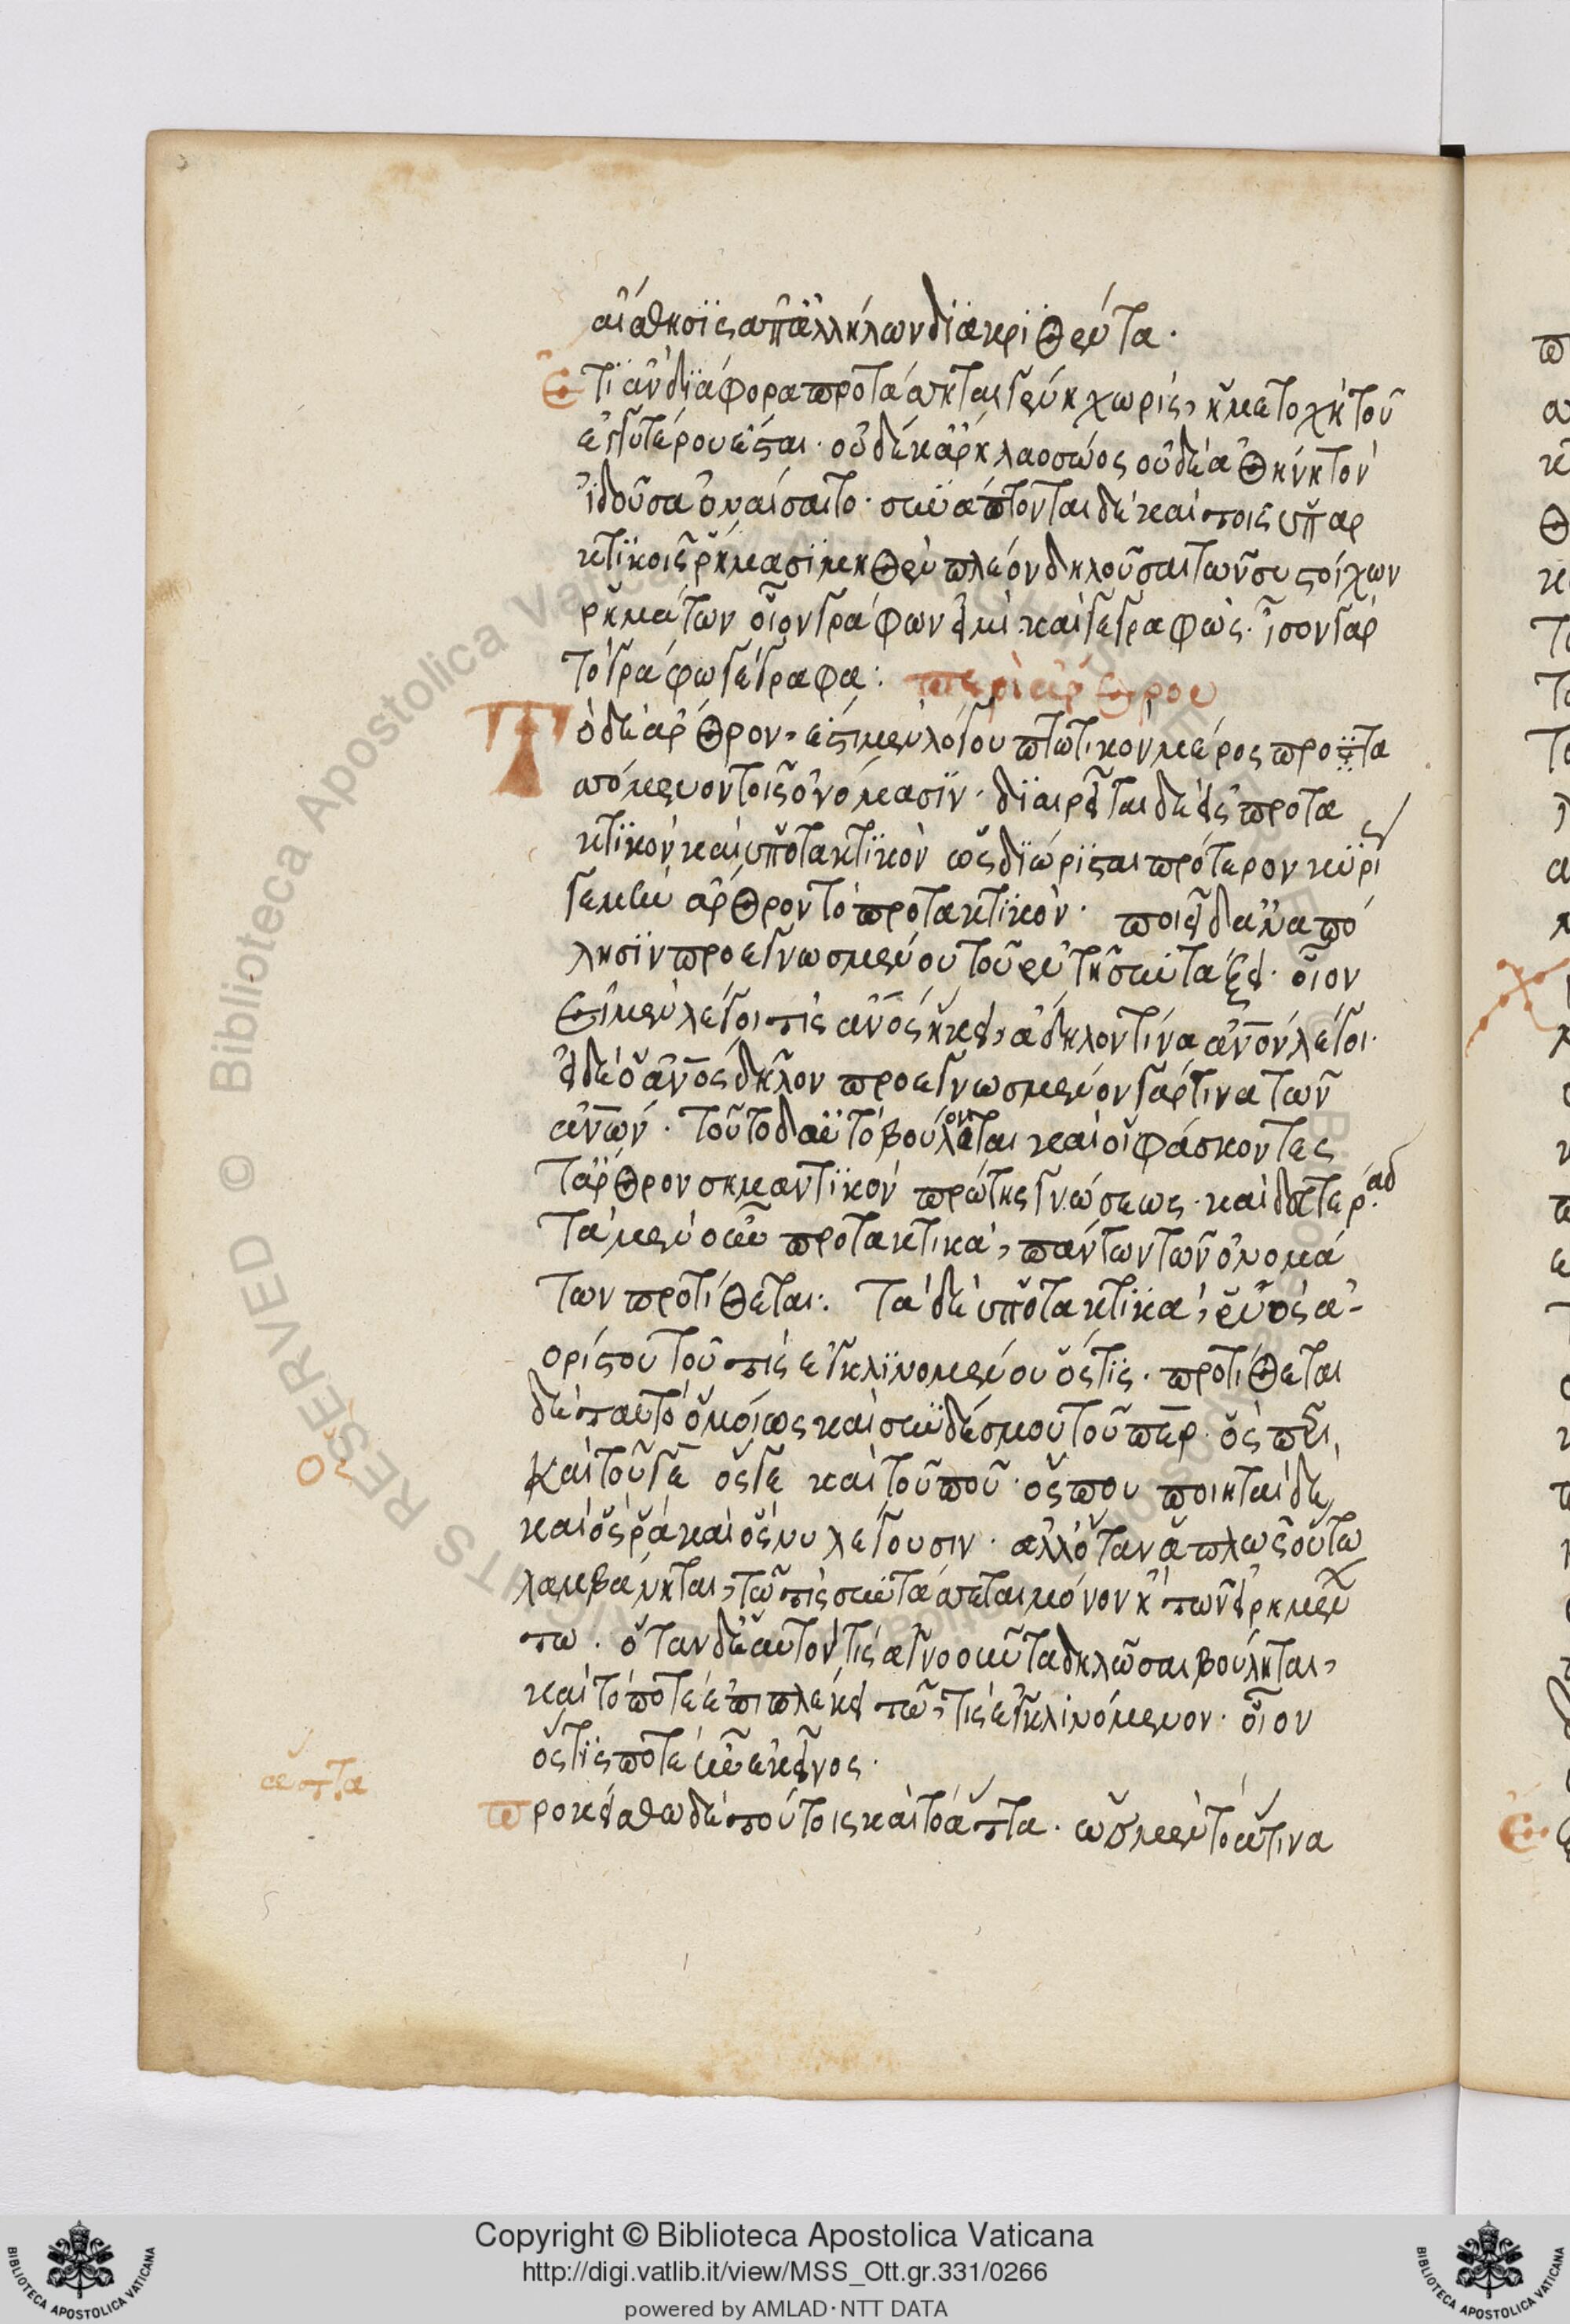 αἴσθησϊς ἀπ' ἀλλήλων δϊακρϊθέντα·
Ἔτϊ ἂν δϊάφορα προτάσσηται γένη χωρίς, ἡ μετοχὴ τοῦ
ἐγγυτέρου ἔσται· οὐδέ κ' ἄρης λαοσσόος οὐδέ κ' ἀθήνη τόν
ἰδοῦσα ὀνόσαιτο· συνάπτονται δὲ καὶ τοῖς ὑπαρ
κτϊκοῖς ῥήμασϊ μηθὲν πλέον δηλοῦσαι τῶν συστοίχων
ῥημάτων οἷον γράφων εἰμὶ καὶ γεγραφώς· ἴσον γὰρ
τὸ γράφω γέγραφα: περὶ ἄρθρου
Τὸ δὲ ἄρθρον, ἔστι μὲν λόγου πτωτικὸν μέρος προτα
σσόμενον τοῖς ὀνόμασϊν· δϊαιρεῖται δὲ εἰς προτα
κτϊκὸν καὶ ὑποτακτϊκὸν ὡς δϊώρϊσται πρότερον κϋρί
γε μὲν ἄρθρον τὸ προτακτϊκόν· ποιεῖ δ' ἀναπό
λησϊν προεγνωσμένου τοῦ ἐν τῇ συντάξει· οἷον
Εἰ μὲν λέγοι τίς ἄνος ἥκει, ἄδηλον τίνα ἄνον λέγοι·
εἰ δὲ ὁ ἄνος δῆλον προεγνωσμένον γάρ τινα τῶν
ἄνων· τοῦτο δ' αὐτὸ βούλονται καὶ οἱ φάσκοντες
τἄρθρον σημαντϊκὸν πρώτης γνώσεως καὶ δευτέρας·
Τὰ μὲν οὖν προτακτικά, πάντων τῶν ὀνομά
των προτίθεται: Τὰ δὲ ὑποτακτϊκά,
ορίστου τοῦ τίς ἐγκλϊνομένου ὅστϊς· προτίθεται
δὲ ταυτὸ ὁμοίως καὶ συνδέσμου τοῦ περ· ὅσπερ
καὶ τοῦ γε ὅς γε καὶ τοῦ που· ὅς που ποιηταὶ δὲ
καὶ ὅς ῥα καὶ ὅς νυ λέγουσιν· ἀλλ' ὅταν ἁπλῶς οὕτω
λαμβάνηται, τῷ τίς συντάσσεται μόνον ἢ τῶν εἰρημένων
τω· ὅταν δὲ αὐτόν τις ἀγνοοῦντα δηλῶσαι βούληται,
καὶ τὸ ποτε ἐπιπλέκει τῷ, τίς ἐγκλινόμενον· οἷον
ὅστϊς ποτε ἦν ἐκεῖνος·
ος
ἄττα
Προκείσθω δὲ τούτοις καὶ τὸ ἅττα· ὡς μὲν τὸ ἅτινα
Copyright © Biblioteca Apostolica Vaticana
http://digi.vatlib.it/view/MSS_Ott.gr.331/0266
powered by AMLAD·NTT DATA